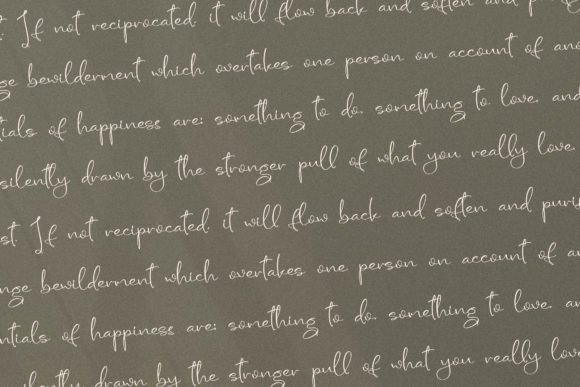 If not reciprocated, it will flow back and soften and
bewilderment which overtakes one person on account of
of happiness are: something to do, something to love, and
silently drawn by the stronger pull of what you really love.
If not reciprocated, it will flow back and soften and
bewilderment which overtakes one person on account of
of happiness are: something to do, something to love, an
drawn by the stronger pull of what you really love